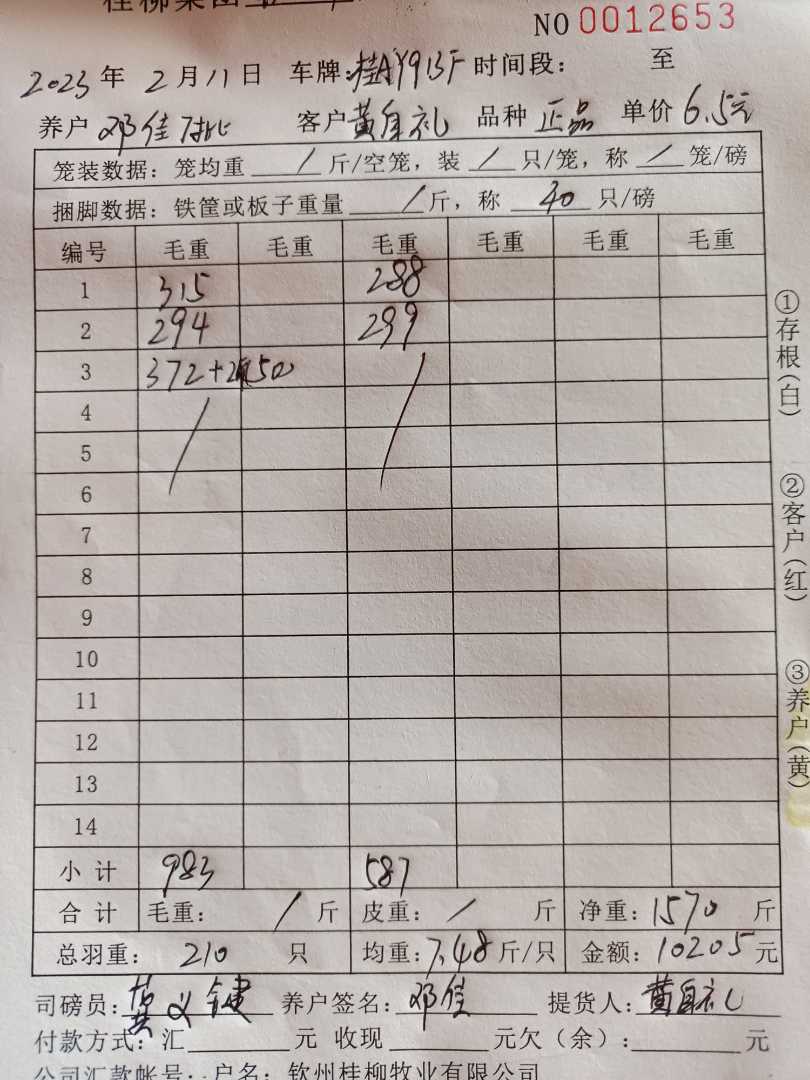 桂柳集团
NO 0012653
2023年 2月11日 车牌:桂AY913F 时间段: 至
养户 邓佳 客户 黄自礼 品种 正品 单价 6.5元
笼装数据: 笼均重 / 斤/空笼, 装 / 只/笼, 称 / 笼/磅
捆脚数据: 铁筐或板子重量 / 斤, 称 30 只/磅
编号 毛重 毛重 毛重 毛重 毛重 毛重
1 315 288
2 294 299
3 372+2 50 /
4 /
5
6
7
8
9
10
11
12
13
14
小 计 983 587
合 计 毛重: / 斤 皮重: / 斤 净重: 1570 斤
总羽重: 210 只 均重: 7.48 斤/只 金额: 10205 元
司磅员: 黄义健 养户签名: 邓佳 提货人: 黄自礼
付款方式: 汇 元 收现 元欠(余): 元
公司汇款帐号: 户名: 钦州桂柳牧业有限公司
①存根(白)
②客户(红)
③养户(黄)